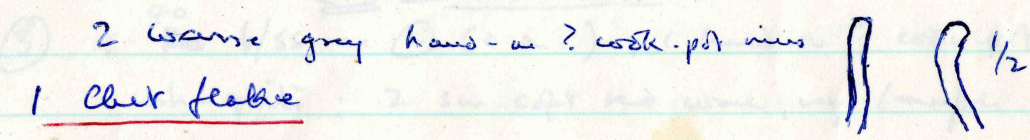 2 coarse grey hand-m ? cook-pot rims 1/2
1 Chert flake